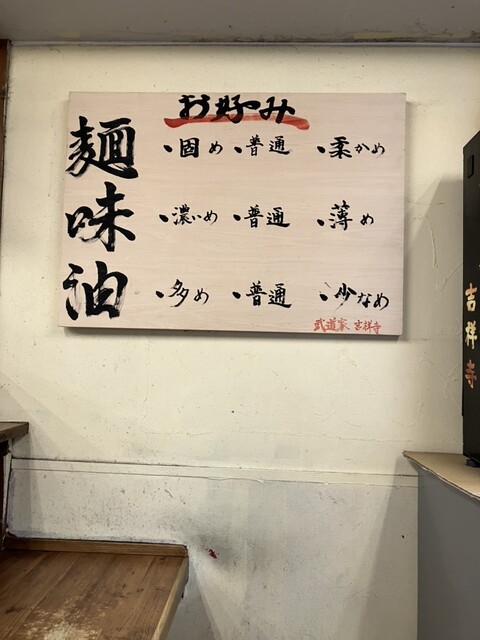 お好み
麺 ・固め ・普通 ・柔かめ
味 ・濃いめ ・普通 ・薄め
油 ・多め ・普通 ・少なめ
武道家 吉祥寺
吉祥寺